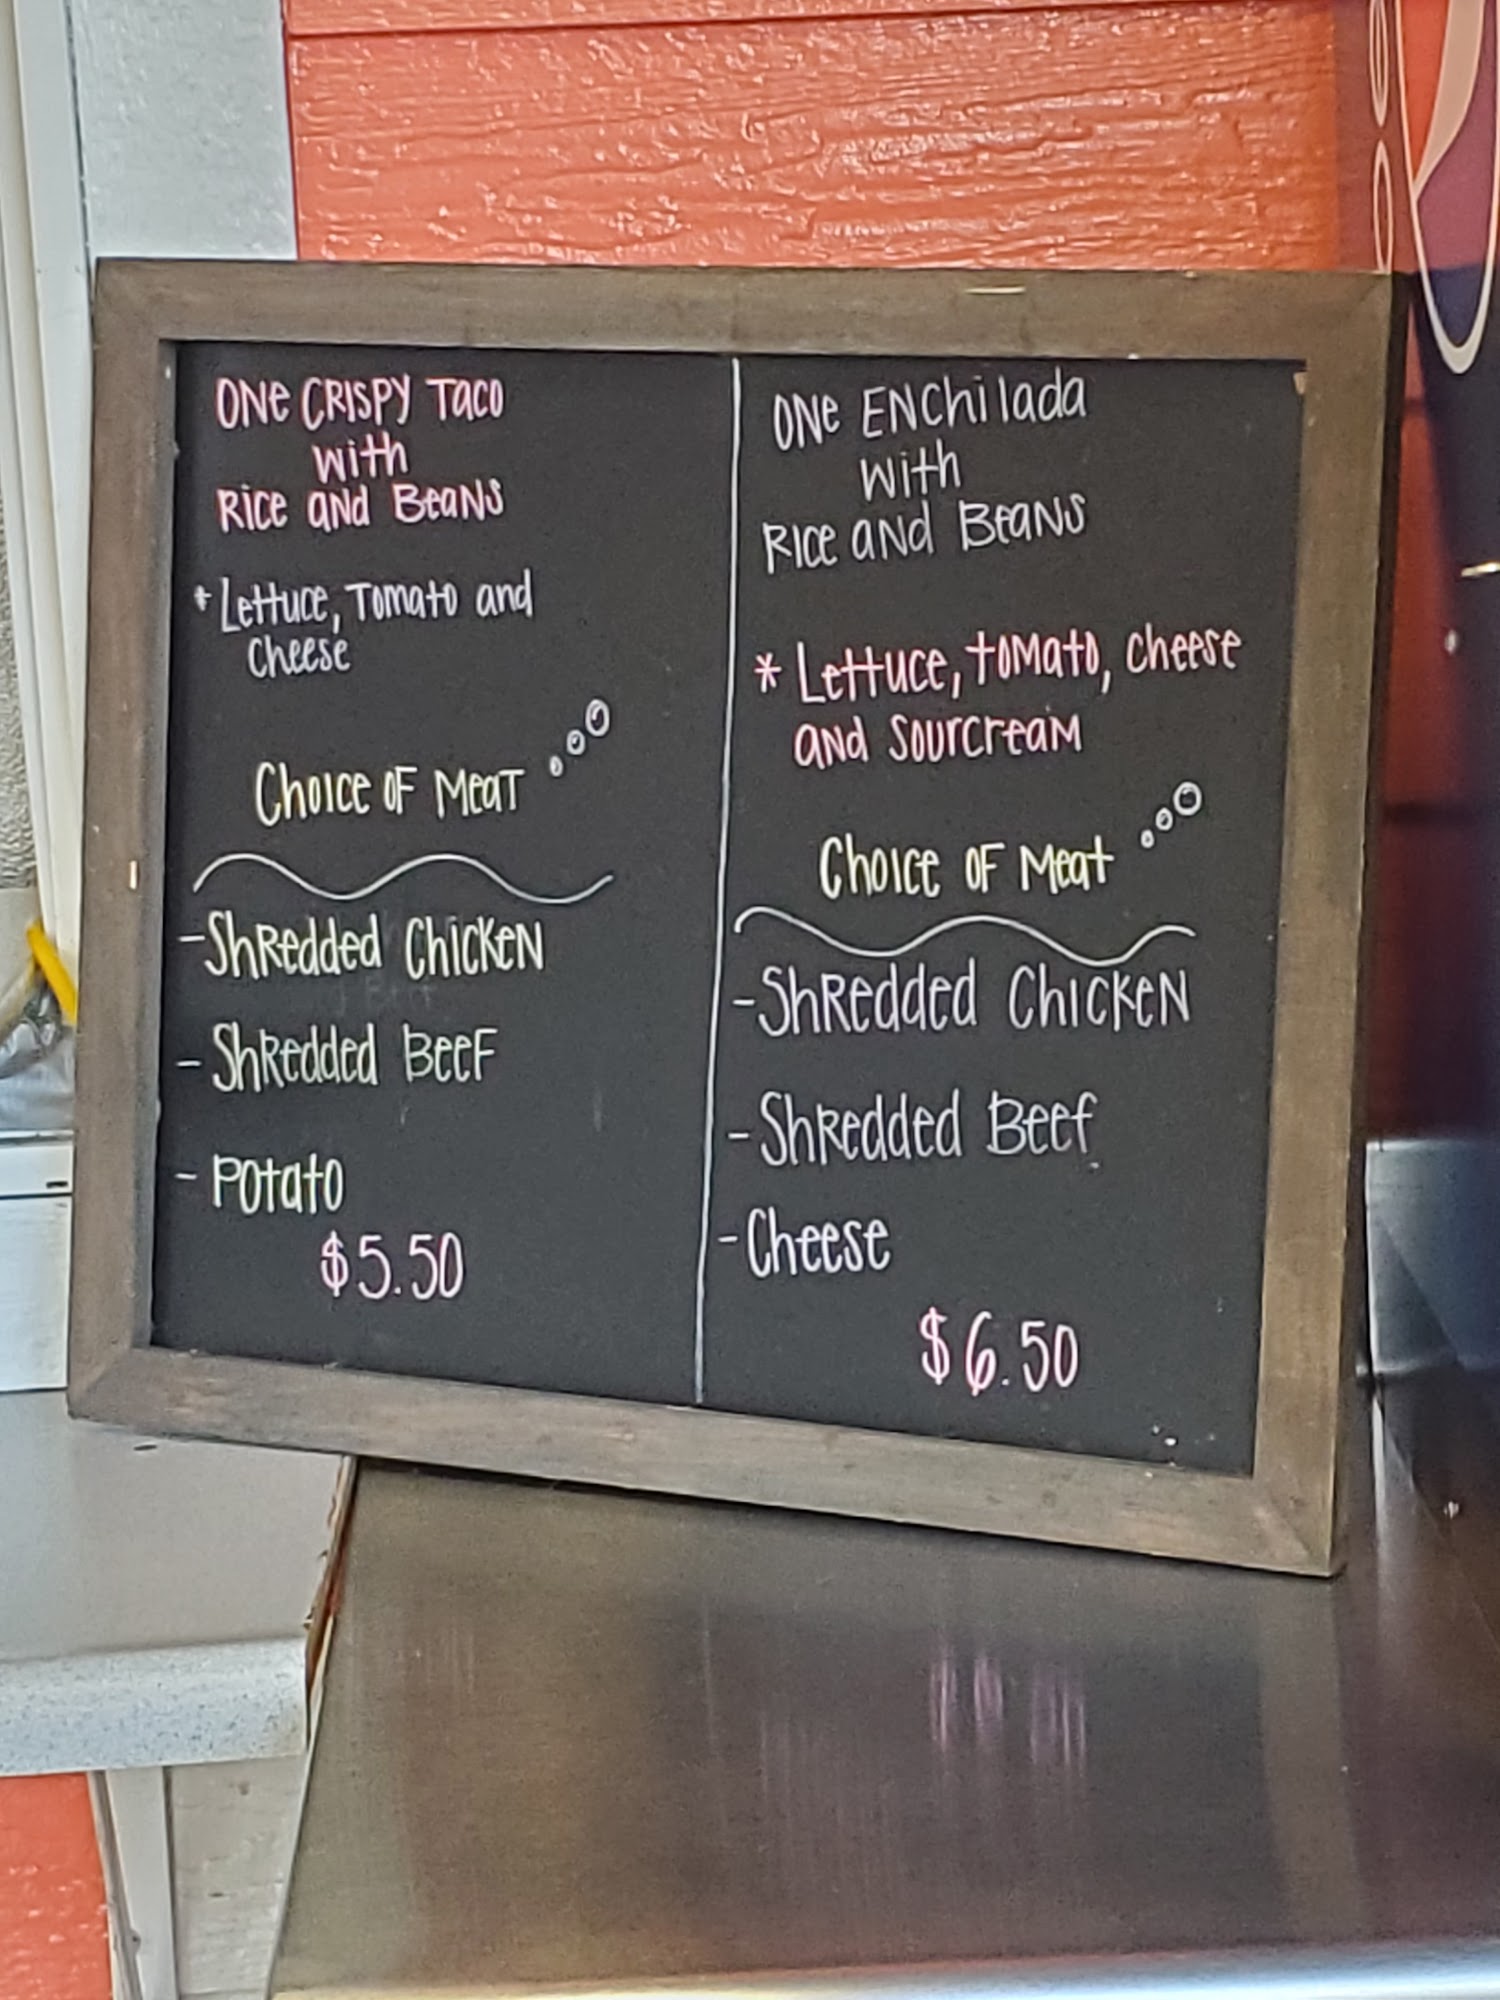 ONe CRISPY Taco
with
Rice and Beans
* Lettuce, Tomato and
Cheese
Choice OF Meat
- Shredded Chicken
- Shredded Beef
- Potato
$5.50
ONe ENchilada
with
Rice and Beans
* Lettuce, tomato, cheese
and sourcream
Choice OF Meat
- Shredded Chicken
- Shredded Beef
- Cheese
$6.50